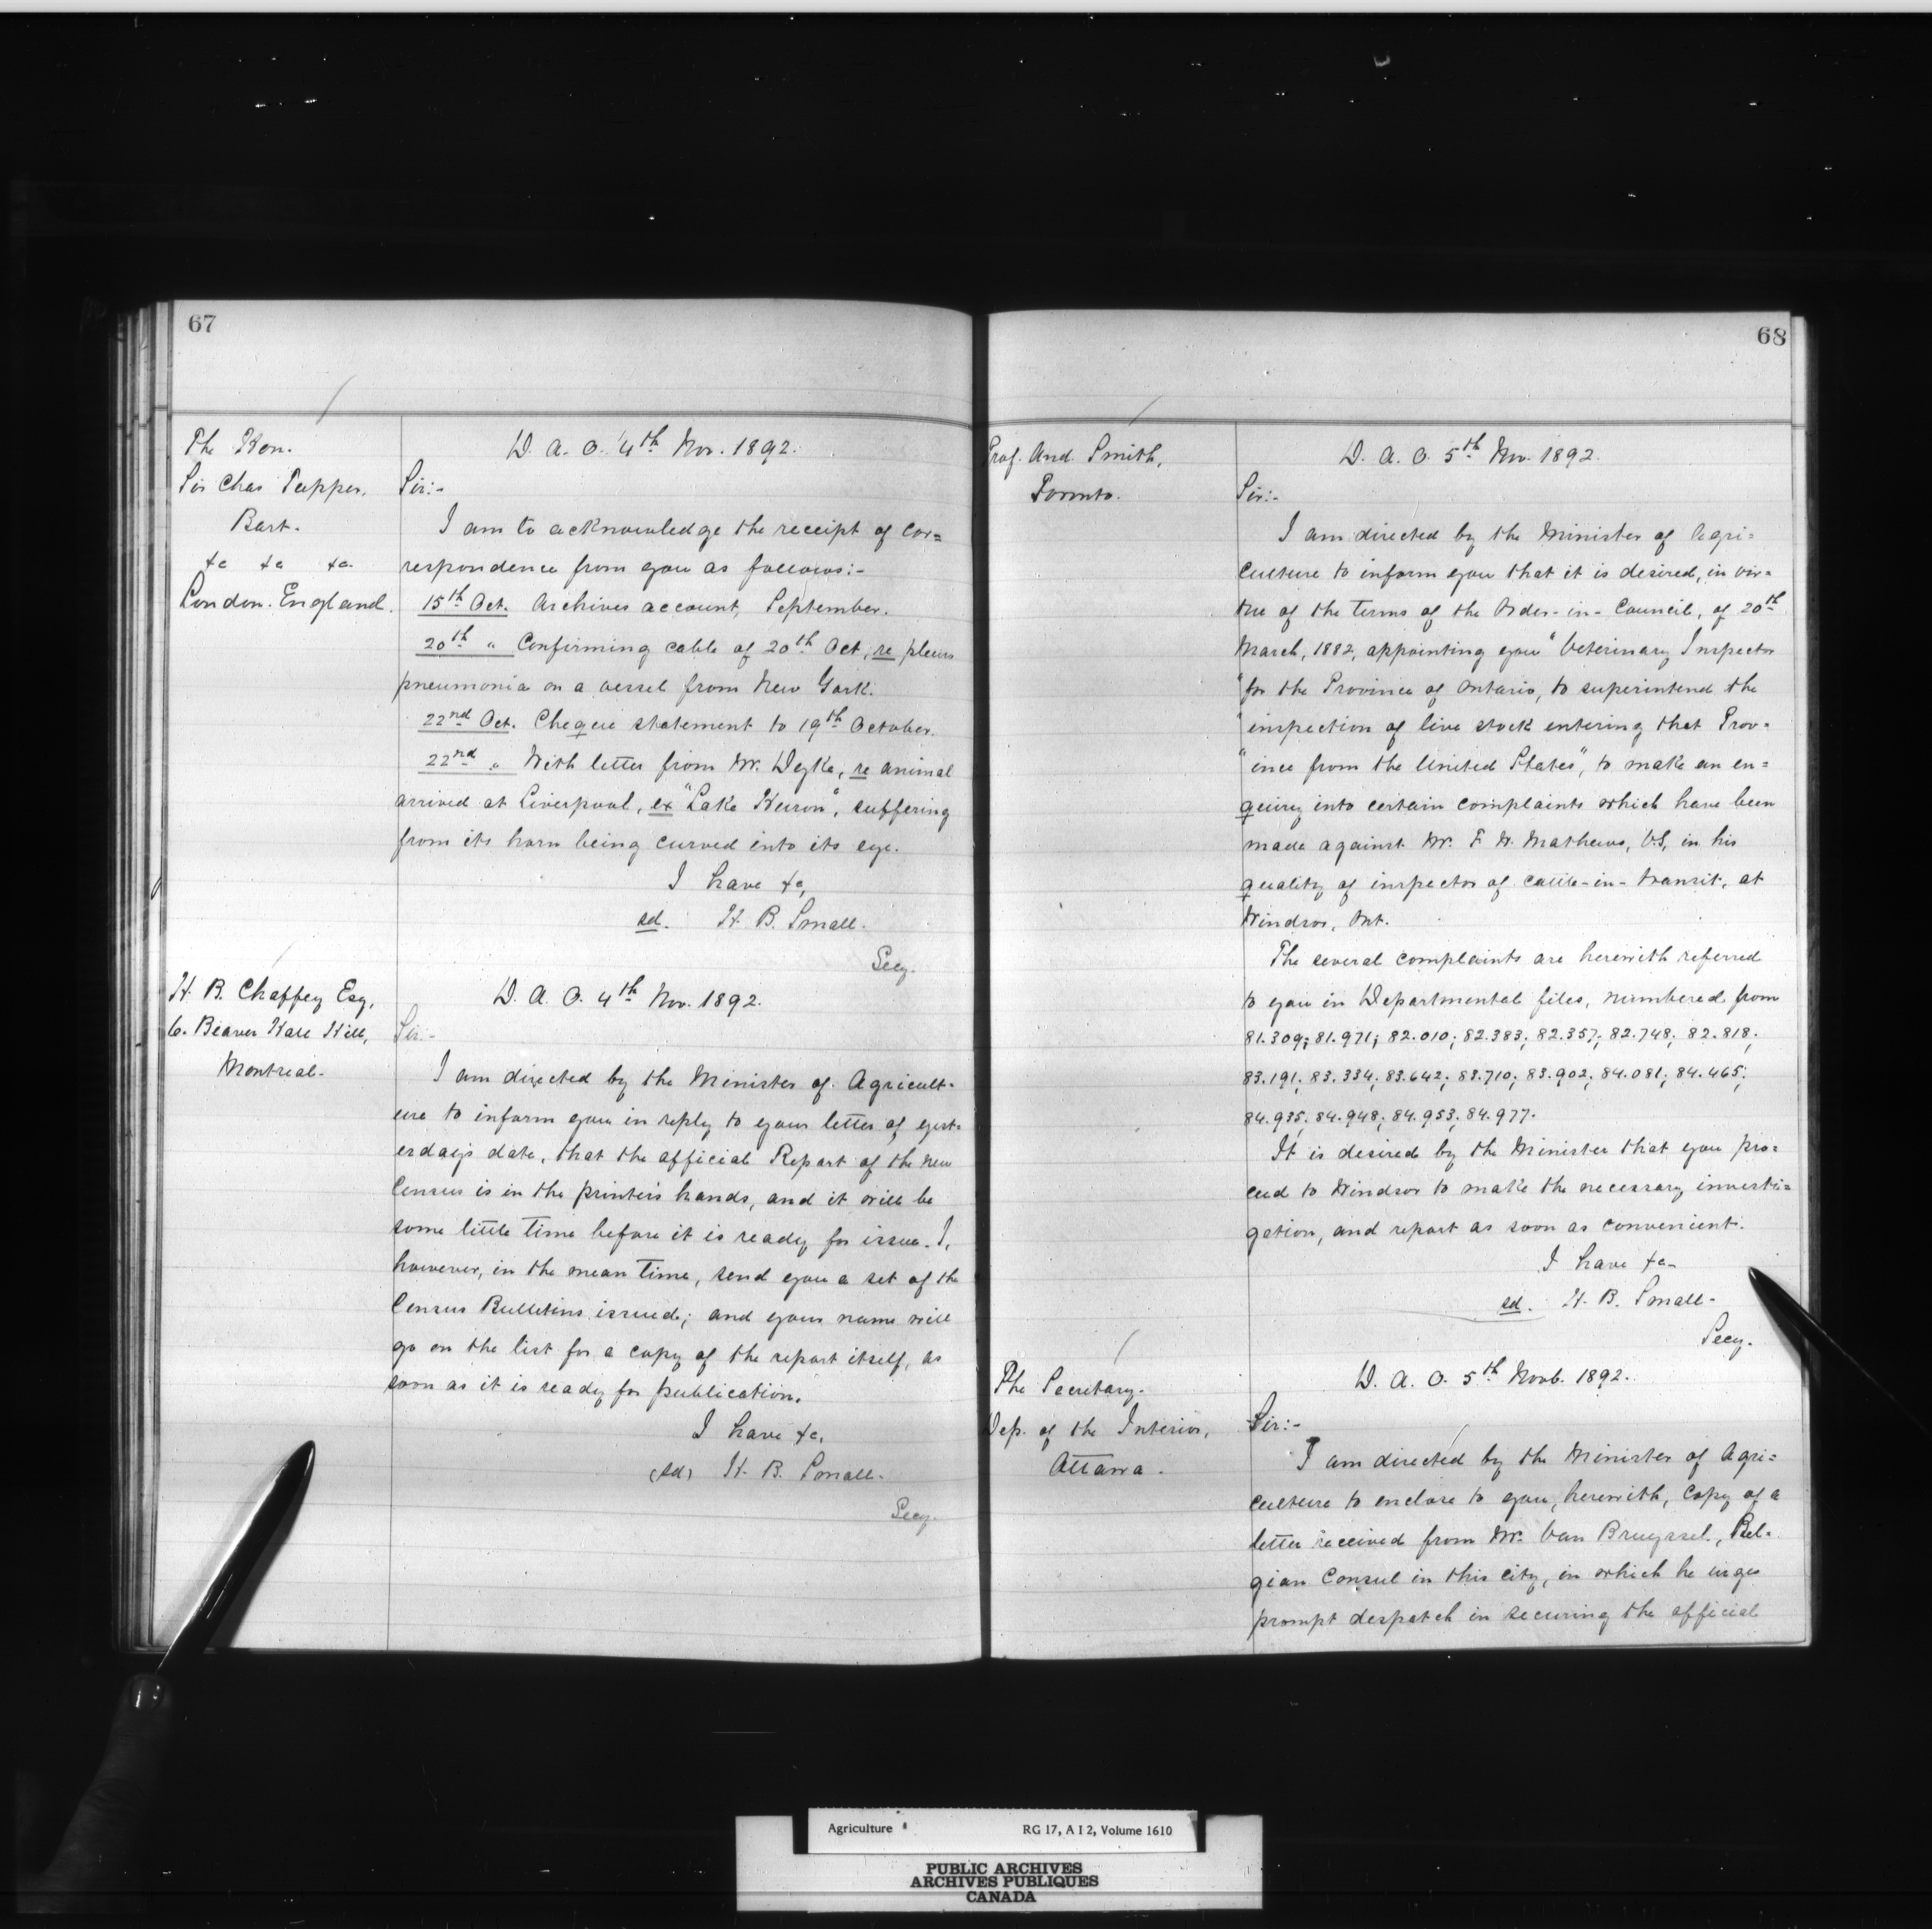 67
The Hon.
Sir Chas Tupper.
Bart.
&c &c &c
London. England.
D. A. O. 4th Nov. 1892.
Sir:-
I am to acknowledge the receipt of cor=
respondence from you as follows:-
15th Oct. Archives account, September.
20th " Confirming cable of 20th Oct, re pleuro
pneumonia on a vessel from New York.
22nd Oct. Cheque statement to 19th October.
22nd " With letter from Mr. Dyke, re animal
arrived at Liverpool, ex "Lake Huron", suffering
from its horn being curved into its eye.
I have &c,
sd. H. B. Small.
Secy.
H. B. Chaffey Esq,
6. Beaver Hall Hill,
Montreal.
D. A. O. 4th Nov. 1892.
Sir:-
I am directed by the Minister of Agricult-
ure to inform you in reply to your letter of yest-
erday's date, that the official Report of the new
Census is in the printer's hands, and it will be
some little time before it is ready for issue. I,
however, in the mean time, send you a set of the
Census Bulletins issued; and your name will
go on the list for a copy of the report itself, as
soon as it is ready for publication.
I have &c,
(sd) H. B. Small.
Secy.
68
Prof. And. Smith,
Toronto.
D. A. O. 5th Nov. 1892.
Sir:-
I am directed by the Minister of Agri=
culture to inform you that it is desired, in vir=
tue of the terms of the Order-in-Council, of 20th
March, 1882, appointing you "Veterinary Inspector
"for the Province of Ontario, to superintend the
"inspection of live stock entering that Prov-
"ince from the United States", to make an en=
quiry into certain complaints which have been
made against Mr. F. W. Mathews, V.S, in his
quality of inspector of cattle-in-transit, at
Windsor, Ont.
The several complaints are herewith referred
to you in Departmental files, numbered from
81.309; 81.971; 82.010; 82.383; 82.357; 82.748; 82.818;
83.191; 83.334; 83.642; 83.710; 83.902; 84.081; 84.465;
84.935; 84.948; 84.953; 84.977.
It is desired by the Minister that you pro=
ceed to Windsor to make the necessary investi=
gation, and report as soon as convenient.
I have &c-
sd. H. B. Small-
Secy.
The Secretary.
Dep. of the Interior,
Ottawa.
D. A. O. 5th Novb. 1892.
Sir:-
I am directed by the Minister of Agri=
culture to enclose to you, herewith, copy of a
letter received from Mr. Van Bruyssel, Bel-
gian Consul in this city, in which he urges
prompt despatch in securing the official
Agriculture RG 17, A I 2, Volume 1610
PUBLIC ARCHIVES
ARCHIVES PUBLIQUES
CANADA